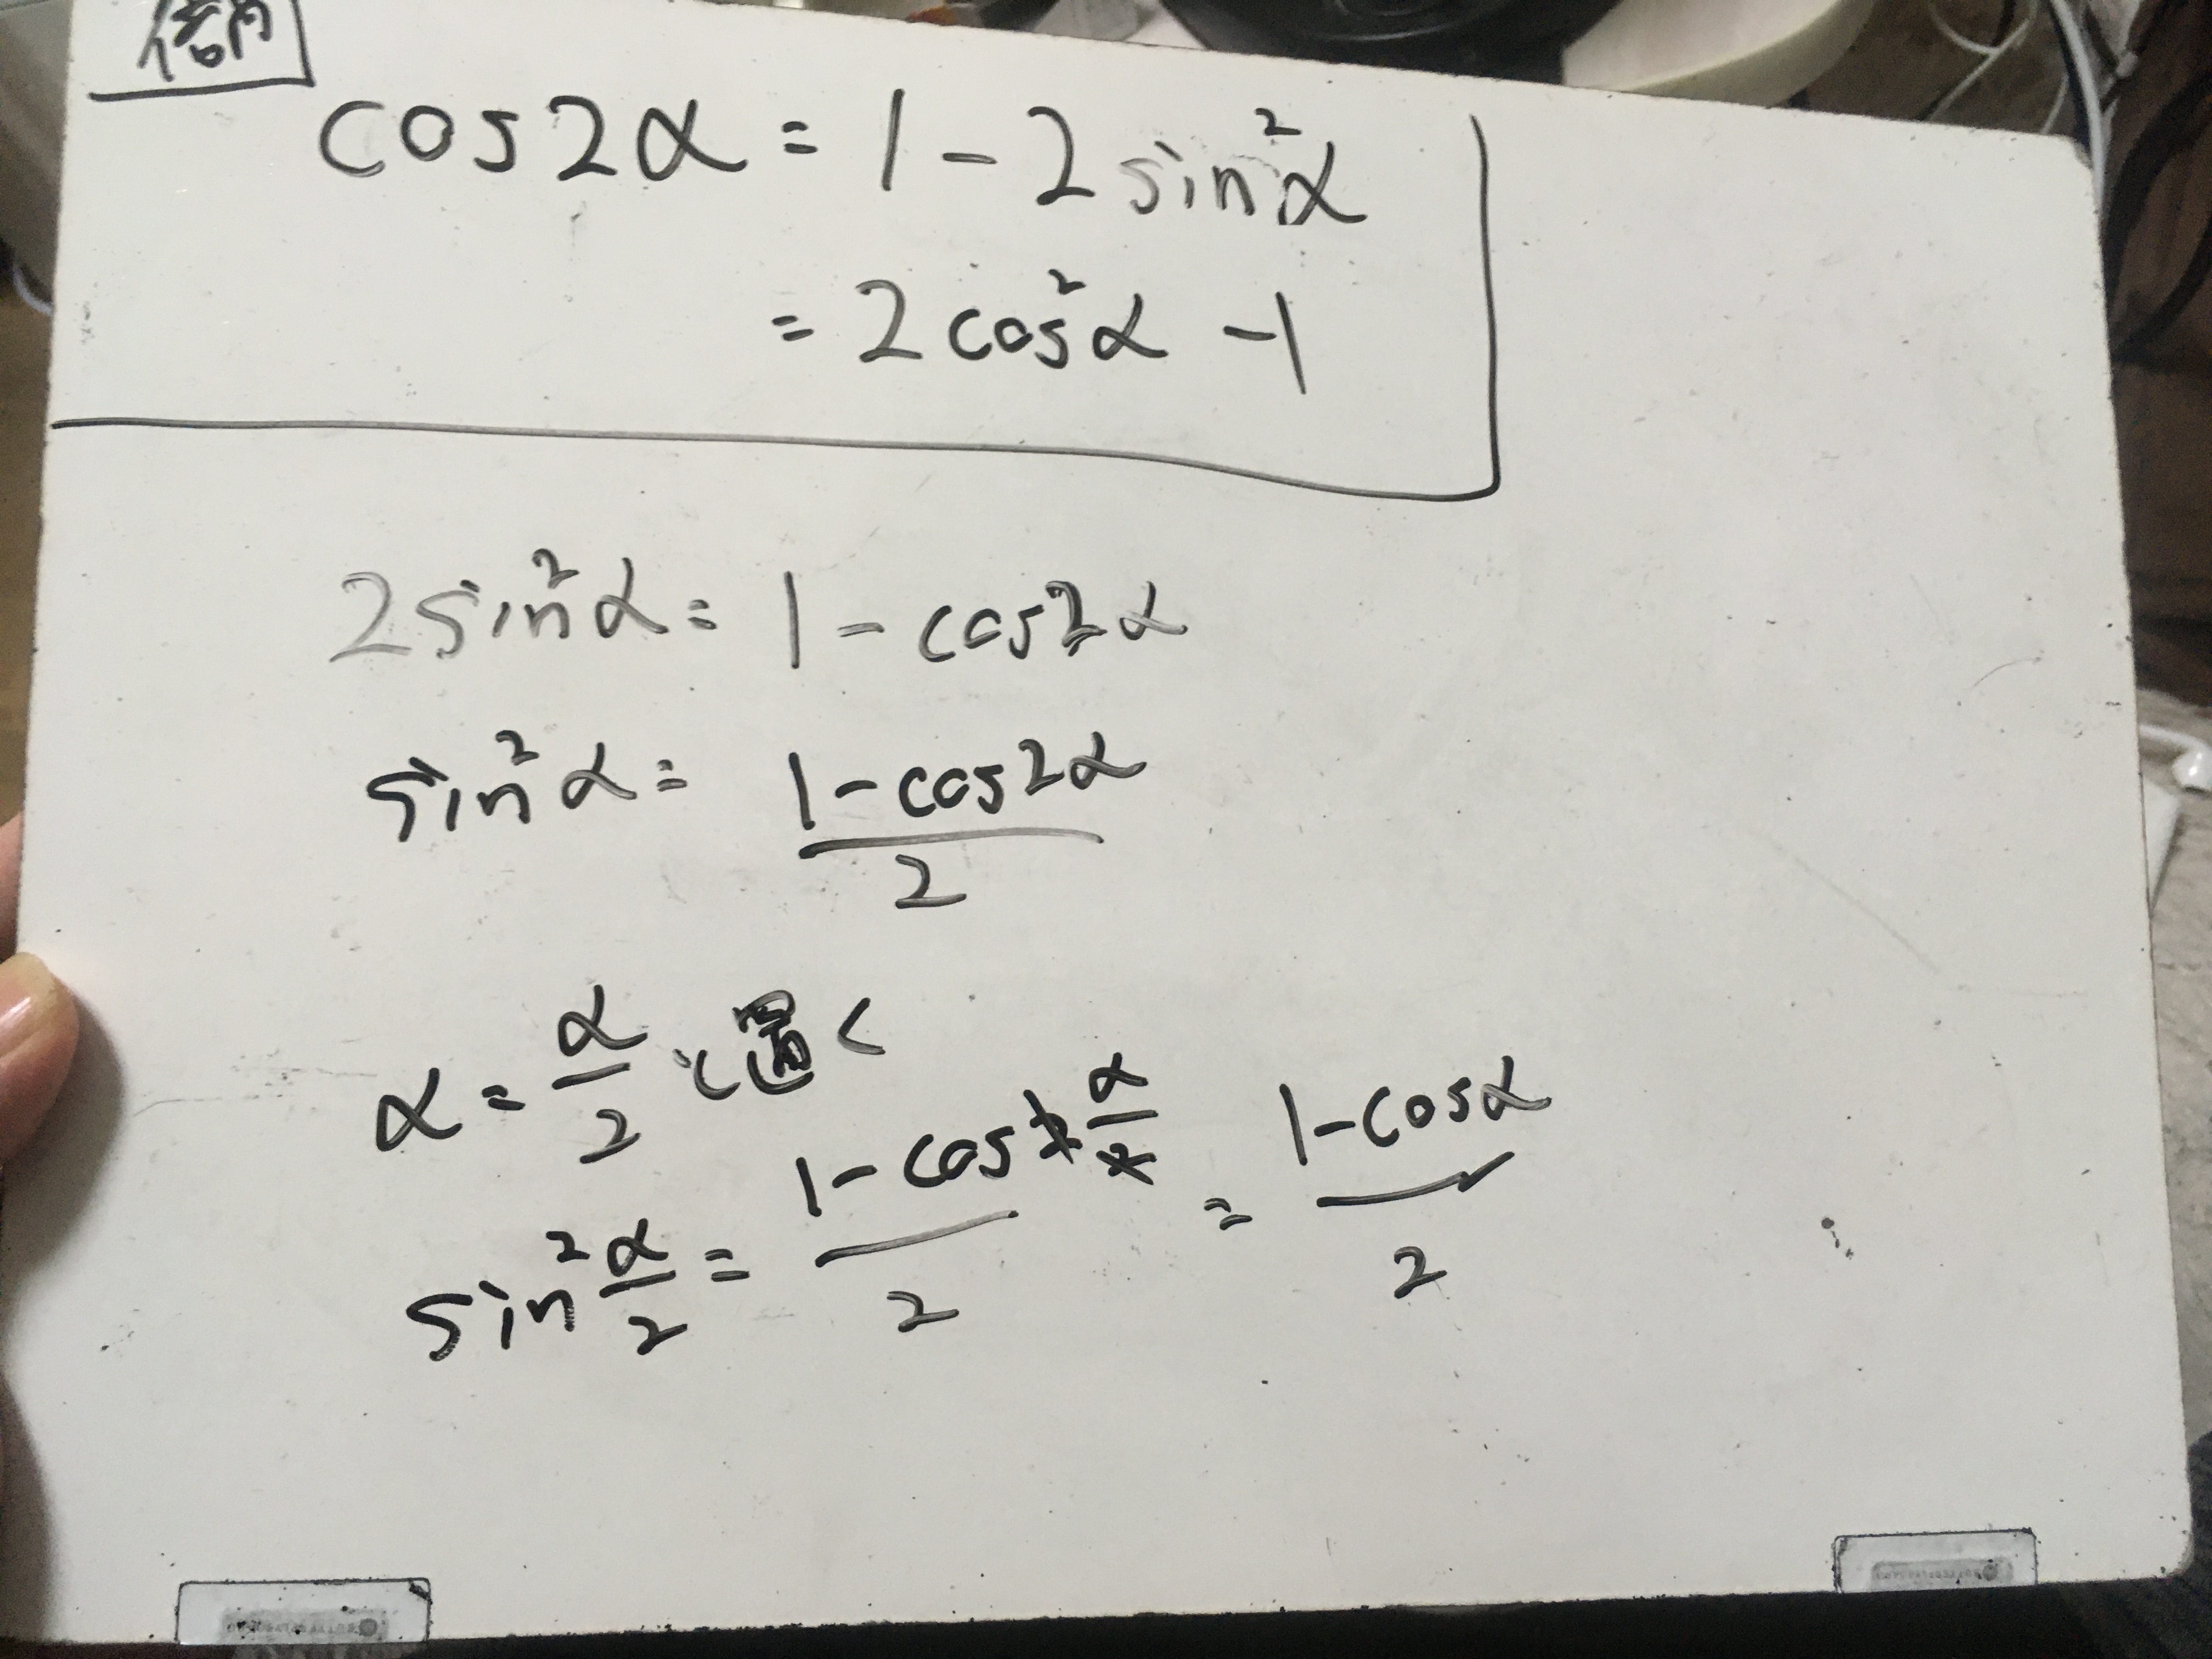 倍角
cos2α = 1 - 2sin²α
= 2cos²α - 1
2sin²α = 1 - cos2α
sin²α = (1 - cos2α)/2
α = α/2 に置く
sin²α/2 = (1 - cos2α/2)/2 = (1 - cosα)/2